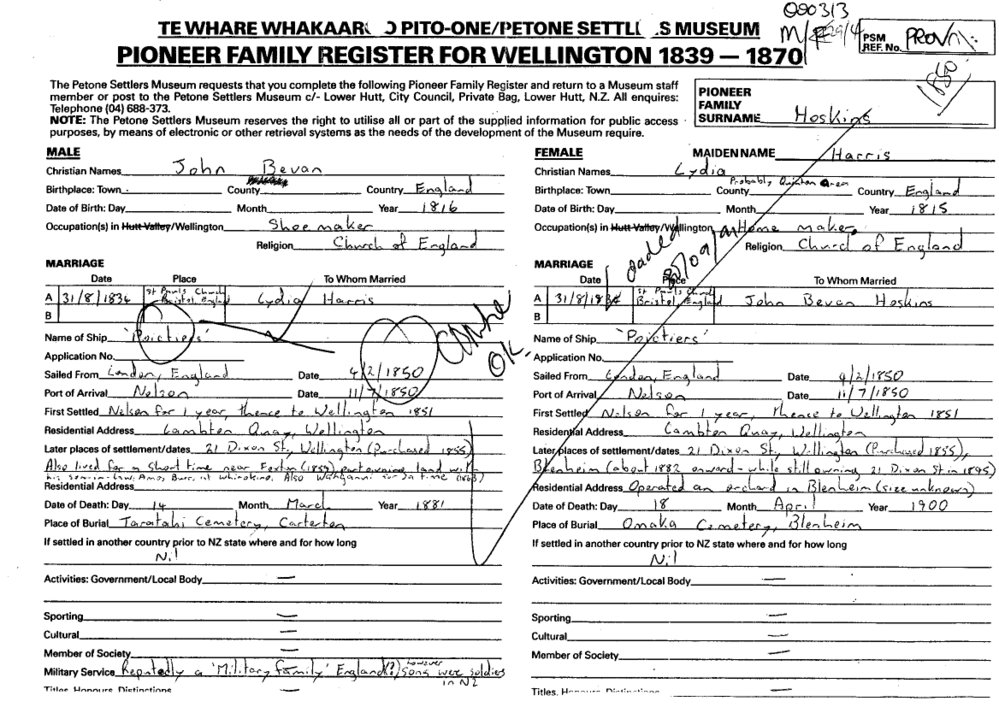 000313
TE WHARE WHAKAAR O PITO-ONE/PETONE SETTL .S MUSEUM
M/ 29/4 PSM REF. No. PROV
PIONEER FAMILY REGISTER FOR WELLINGTON 1839 — 1870
1850
The Petone Settlers Museum requests that you complete the following Pioneer Family Register and return to a Museum staff
member or post to the Petone Settlers Museum c/- Lower Hutt, City Council, Private Bag, Lower Hutt, N.Z. All enquires:
Telephone (04) 688-373.
NOTE: The Petone Settlers Museum reserves the right to utilise all or part of the supplied information for public access
purposes, by means of electronic or other retrieval systems as the needs of the development of the Museum require.
PIONEER FAMILY SURNAME Hoskins
MALE
Christian Names John Bevan
Birthplace: Town County Country England
Date of Birth: Day Month Year 1816
Occupation(s) in Hutt Valley/Wellington Shoe maker
Religion Church of England
MARRIAGE
Date Place To Whom Married
A 31/8/1836 St Pauls Church Bristol, England Lydia Harris
B
Name of Ship 'Poictiers'
Application No.
Sailed From London, England Date 4/2/1850
Port of Arrival Nelson Date 11/7/1850
First Settled Nelson for 1 year, thence to Wellington 1851
Residential Address Lambton Quay, Wellington
Later places of settlement/dates 21 Dixon St, Wellington (Purchased 1855)
Also lived for a short time near Foxton (1859) part owning land with
his son-in-law, Amos Burr, at Whirokino. Also Wanganui for a time (1863)
Residential Address
Date of Death: Day 14 Month March Year 1881
Place of Burial Taratahi Cemetery, Carterton
If settled in another country prior to NZ state where and for how long
Nil
Activities: Government/Local Body —
Sporting —
Cultural —
Member of Society —
Military Service Reputedly a 'Military family' England(?) however sons were soldies in NZ
Titles Honours Distinctions —
OK
FEMALE MAIDEN NAME Harris
Christian Names Lydia
Birthplace: Town County Probably area Country England
Date of Birth: Day Month Year 1815
Occupation(s) in Hutt Valley/Wellington Home maker
Religion Church of England
loaded
MARRIAGE
Date Place To Whom Married
A 31/8/1836 St Pauls Church Bristol, England John Bevan Hoskins
B
Name of Ship 'Poictiers'
Application No.
Sailed From London, England Date 4/2/1850
Port of Arrival Nelson Date 11/7/1850
First Settled Nelson for 1 year, thence to Wellington 1851
Residential Address Lambton Quay, Wellington
Later places of settlement/dates 21 Dixon St, Wellington (Purchased 1855),
Blenheim (about 1882 onward - while still owning 21 Dixon St in 1895)
Residential Address Operated an orchard in Blenheim (size unknown)
Date of Death: Day 18 Month April Year 1900
Place of Burial Omaka Cemetery, Blenheim
If settled in another country prior to NZ state where and for how long
Nil
Activities: Government/Local Body —
Sporting —
Cultural —
Member of Society —
Titles. Honours Distinctions —